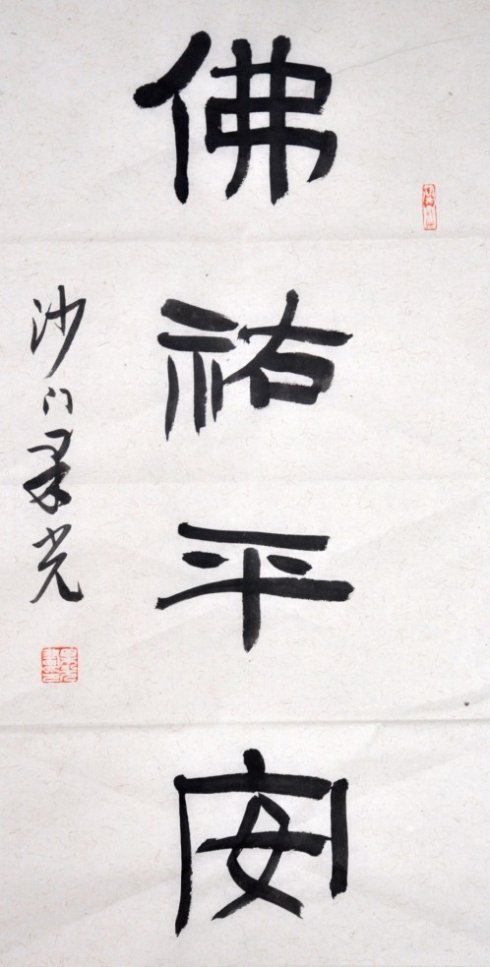 佛祐平安
沙门 光